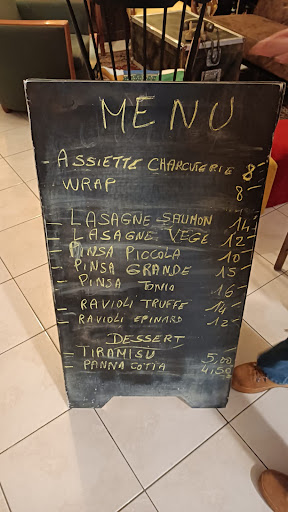 MENU
- ASSIETTE CHARCUTERIE 8-
- WRAP 8-
- LASAGNE SAUMON 14-
- LASAGNE VEGE 12-
- PINSA PICCOLA 10
- PINSA GRANDE 15-
- PINSA TONIO 16-
- RAVIOLI TRUFFE 14-
- RAVIOLI EPINARD 12-
DESSERT
- TIRAMISU 5,00
- PANNA COTTA 4,50